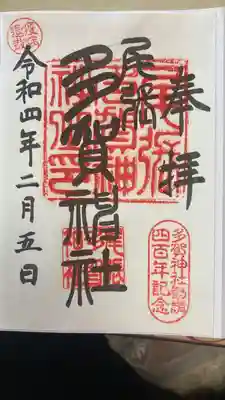 奉拝
尾張
多賀神社
令和四年二月五日
多賀神社勧請
四百年記念